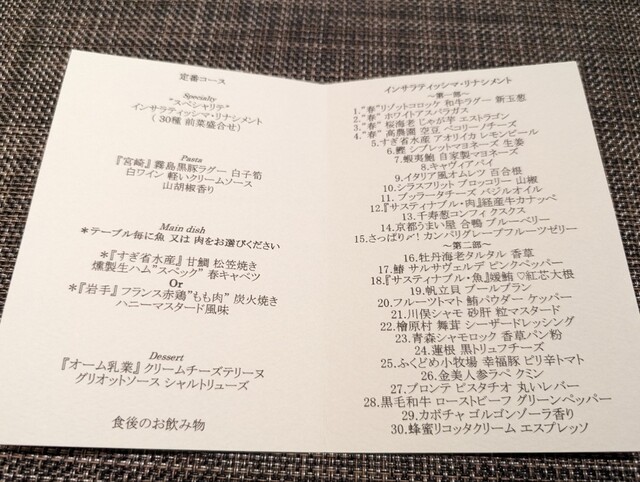 定番コース
Specialty
"スペシャリテ"
インサラティッシマ・リナシメント
( 30種 前菜盛合せ)
Pasta
『宮崎』霧島黒豚ラグー 白子筍
白ワイン 軽いクリームソース
山胡椒香り
Main dish
＊テーブル毎に魚 又は 肉をお選びください
＊『すぎ省水産』甘鯛 松笠焼き
燻製生ハム"スペック" 春キャベツ
Or
＊『岩手』フランス赤鶏"もも肉" 炭火焼き
ハニーマスタード風味
Dessert
『オーム乳業』クリームチーズテリーヌ
グリオットソース シャルトリューズ
食後のお飲み物
インサラティッシマ・リナシメント
～第一部～
1."春"リゾットコロッケ 和牛ラグー 新玉葱
2."春" ホワイトアスパラガス
3."春" 桜海老 じゃが芋 エストラゴン
4."春" 高農園 空豆 ペコリーノチーズ
5.すぎ省水産 アオリイカ レモンピール
6.鰹 シブレットマヨネーズ 生姜
7.蝦夷鮑 自家製マヨネーズ
8.キャヴィアパイ
9.イタリア風オムレツ 百合根
10.シラスフリット ブロッコリー 山椒
11.ブッラータチーズ バジルオイル
12.『サスティナブル・肉』経産牛カナッペ
13.千寿葱コンフィ クスクス
14.京都うまい屋 合鴨 ブルーベリー
15.さっぱり〆! カンパリグレープフルーツゼリー
～第二部～
16.牡丹海老タルタル 香草
17.鰆 サルサヴェルデ ピンクペッパー
18.『サスティナブル・魚』媛鮪 ♡紅芯大根
19.帆立貝 ブールブラン
20.フルーツトマト 鮪パウダー ケッパー
21.川俣シャモ 砂肝 粒マスタード
22.檜原村 舞茸 シーザードレッシング
23.青森シャモロック 香草パン粉
24.蓮根 黒トリュフチーズ
25.ふくどめ小牧場 幸福豚 ピリ辛トマト
26.金美人参ラペ クミン
27.ブロンテ ピスタチオ 丸いレバー
28.黒毛和牛 ローストビーフ グリーンペッパー
29.カボチャ ゴルゴンゾーラ香り
30.蜂蜜リコッタクリーム エスプレッソ